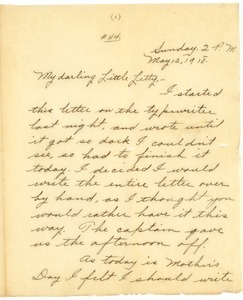 (1)
#44.
Sunday, 2 P.M.
May 12, 1918.
My darling Little Letty,-
I started
this letter on the typewriter
last night, and wrote until
it got so dark I couldn't
see, so had to finish it
today. I decided I would
write the entire letter over
by hand, as I thought you
would rather have it this
way. The captain gave
us the afternoon off.
As today is Mother's
Day I felt I should write